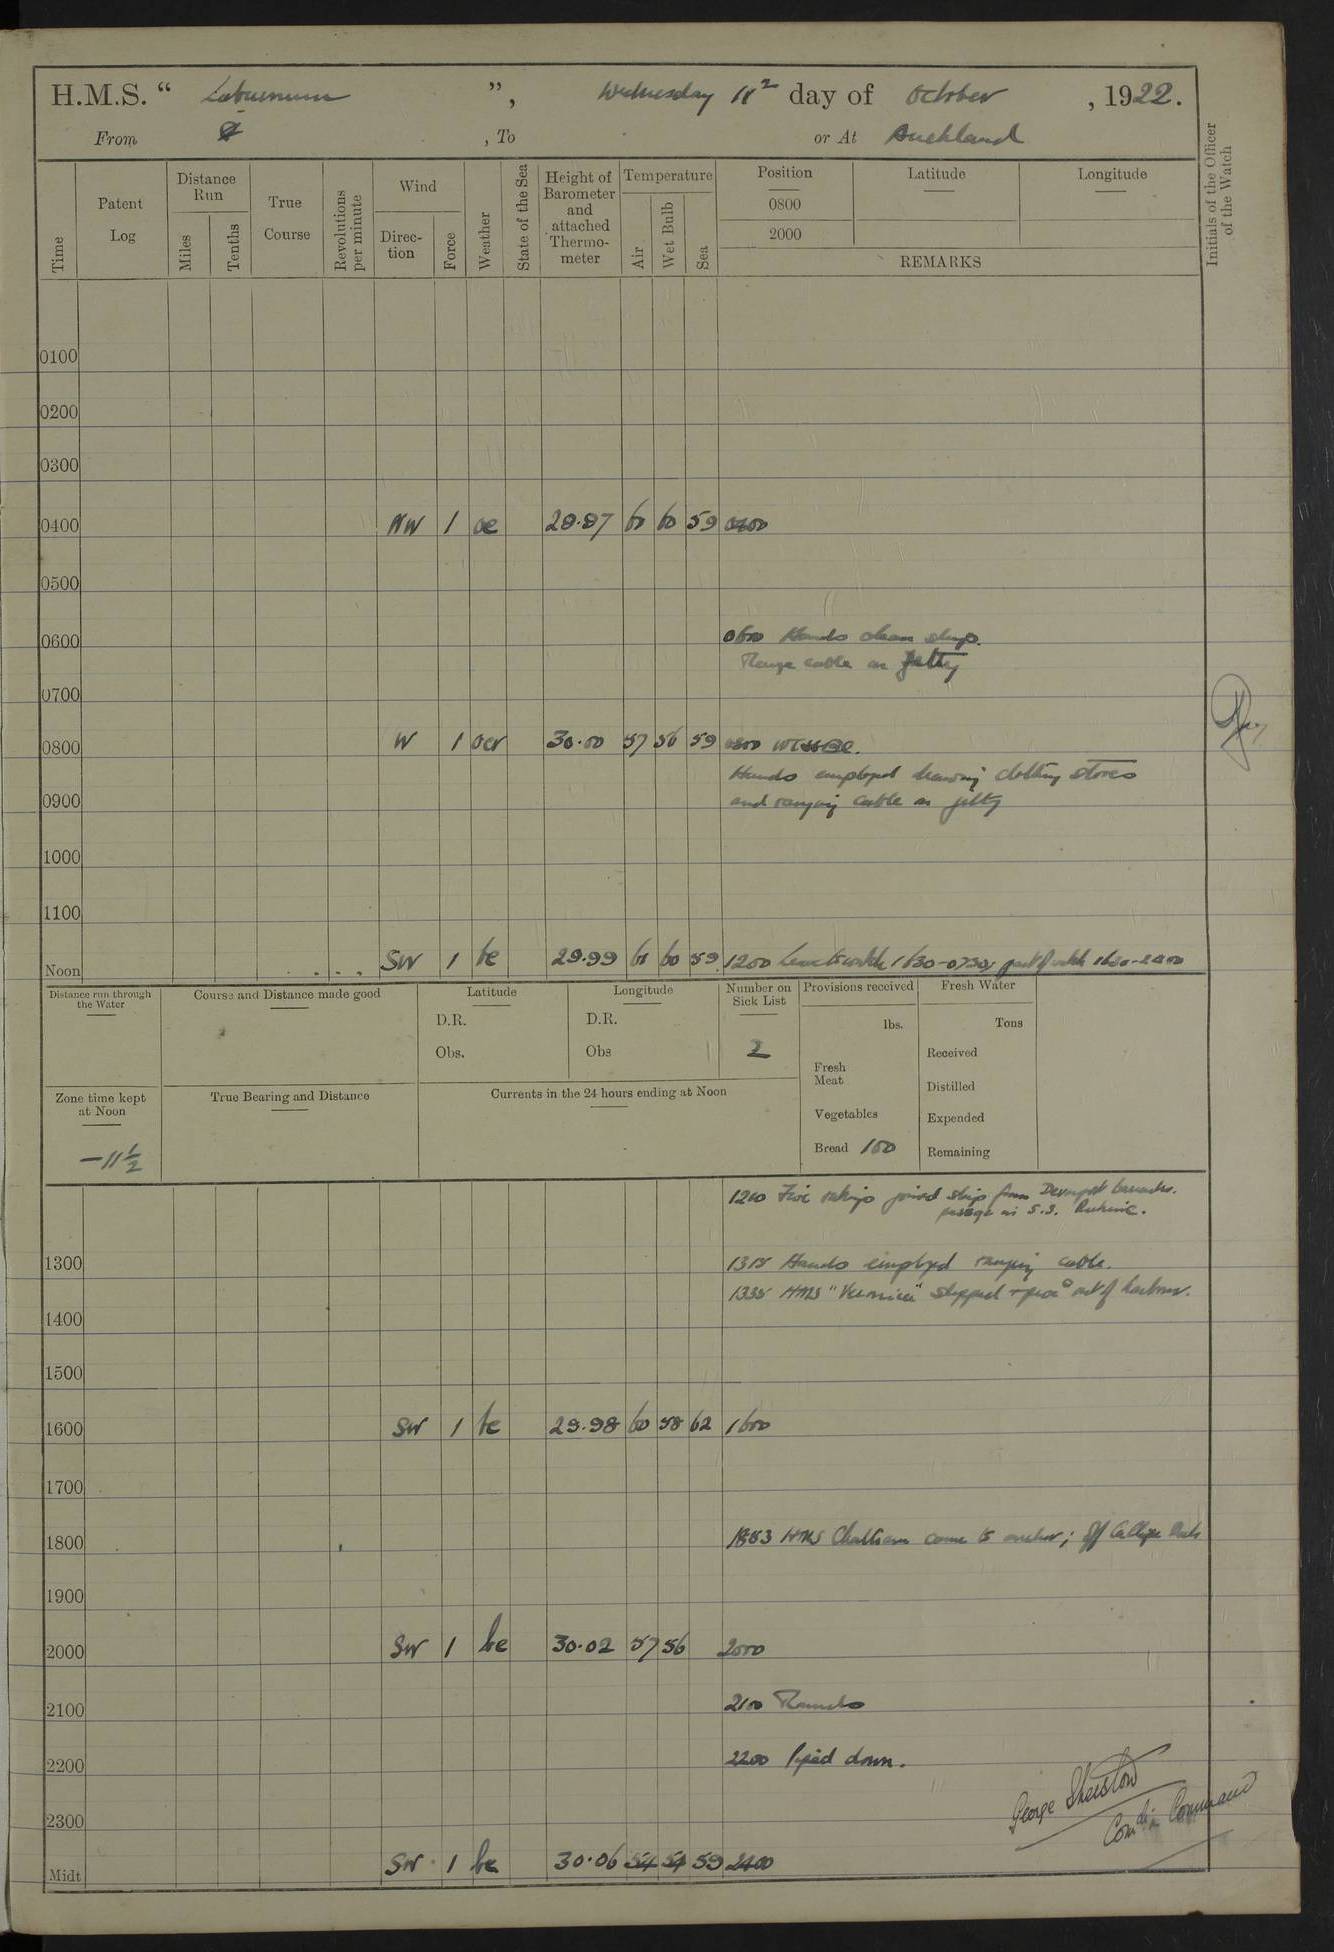 H.M.S. " Laburnum ", Wednesday 11th day of October, 1922.
From , To or At Auckland
Initials of the Officer of the Watch
Time
Patent Log
Distance Run
Miles
Tenths
True Course
Revolutions per minute
Wind
Direc-tion
Force
Weather
State of the Sea
Height of Barometer and attached Thermo-meter
Temperature
Air
Wet Bulb
Sea
Position
0800
2000
Latitude
Longitude
REMARKS
0100
0200
0300
0400 NW 1 oc 29.97 60 60 59 0400
0500
0600 0600 Hands clean ship.
Range cable on jetty
0700
0800 W 1 ocr 30.00 57 56 59 0800
Hands employed drawing clothing stores
0900 and ranging cable on jetty
1000
1100
Noon SW 1 bc 29.99 61 60 59 1200 Leave to watch 1630-0730, part of watch 1630-2200
Distance run through the Water
Course and Distance made good
Latitude
D.R.
Obs.
Longitude
D.R.
Obs
Number on Sick List
2
Provisions received
lbs.
Fresh Meat
Vegetables
Bread 100
Fresh Water
Tons
Received
Distilled
Expended
Remaining
Zone time kept at Noon
-11½
True Bearing and Distance
Currents in the 24 hours ending at Noon
1210 Five ratings joined ship from Devonport barracks.
passage in S.S. Ruahine.
1300 1315 Hands employed ranging cable.
1335 HMS "Veronica" slipped + proc'd out of harbour.
1400
1500
1600 SW 1 bc 29.98 60 58 62 1600
1700
1800 1853 HMS Chatham came to anchor; off Calliope Dock
1900
2000 SW 1 bc 30.02 57 56 2000
2100 2100 Rounds
2200 2200 Piped down.
2300
George Sherston
Com'd'r in Command
Midt SW 1 bc 30.06 54 54 59 2400